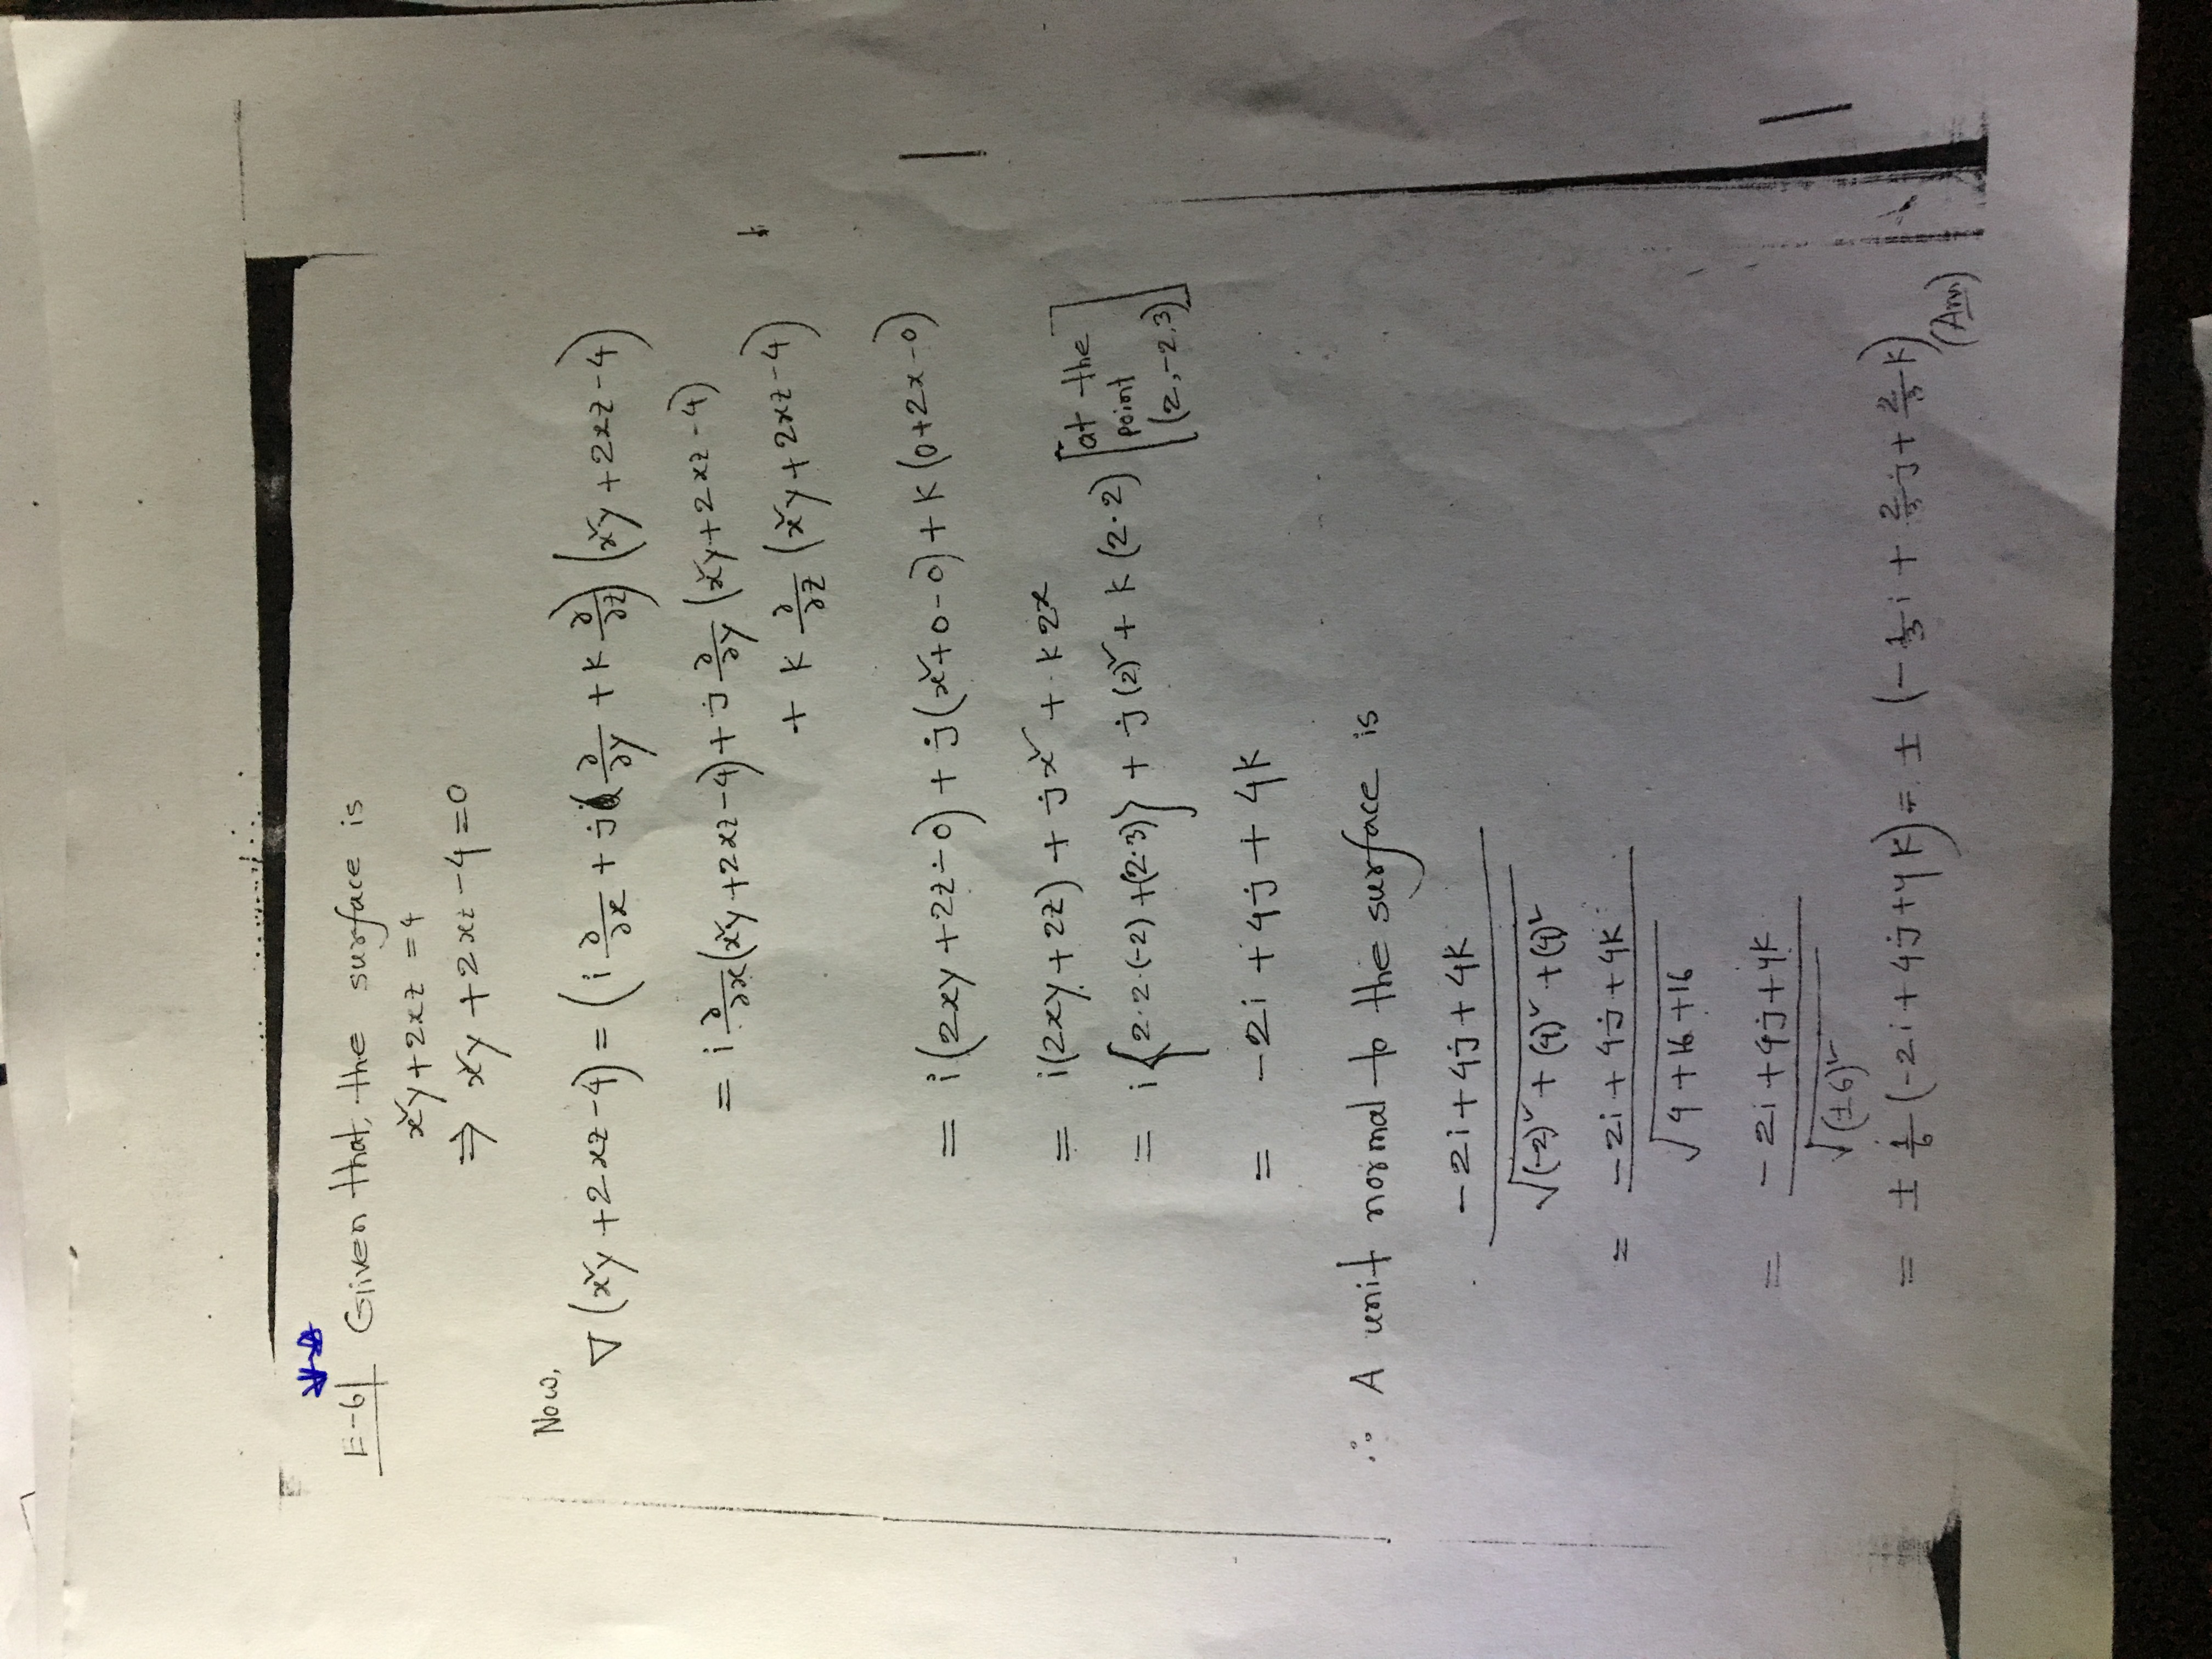 E-6| Given that, the surface is
x²y + 2xz = 4
⇒ x²y + 2xz - 4 = 0
Now,
∇(x²y + 2xz - 4) = (i ∂/∂x + j ∂/∂y + k ∂/∂z) (x²y + 2xz - 4)
= i ∂/∂x (x²y + 2xz - 4) + j ∂/∂y (x²y + 2xz - 4)
+ k ∂/∂z (x²y + 2xz - 4)
= i(2xy + 2z - 0) + j(x² + 0 - 0) + k(0 + 2x - 0)
= i(2xy + 2z) + jx² + k2x
= i{2·2·(-2) + (2·3)} + j(2)² + k(2·2) [at the point (2, -2, 3)]
= -2i + 4j + 4k
∴ A unit normal to the surface is
(-2i + 4j + 4k) / √((-2)² + (4)² + (4)²)
= (-2i + 4j + 4k) / √(4 + 16 + 16)
= (-2i + 4j + 4k) / √((±6)²)
= ± 1/6 (-2i + 4j + 4k) = ± (-1/3 i + 2/3 j + 2/3 k)
(Ans)